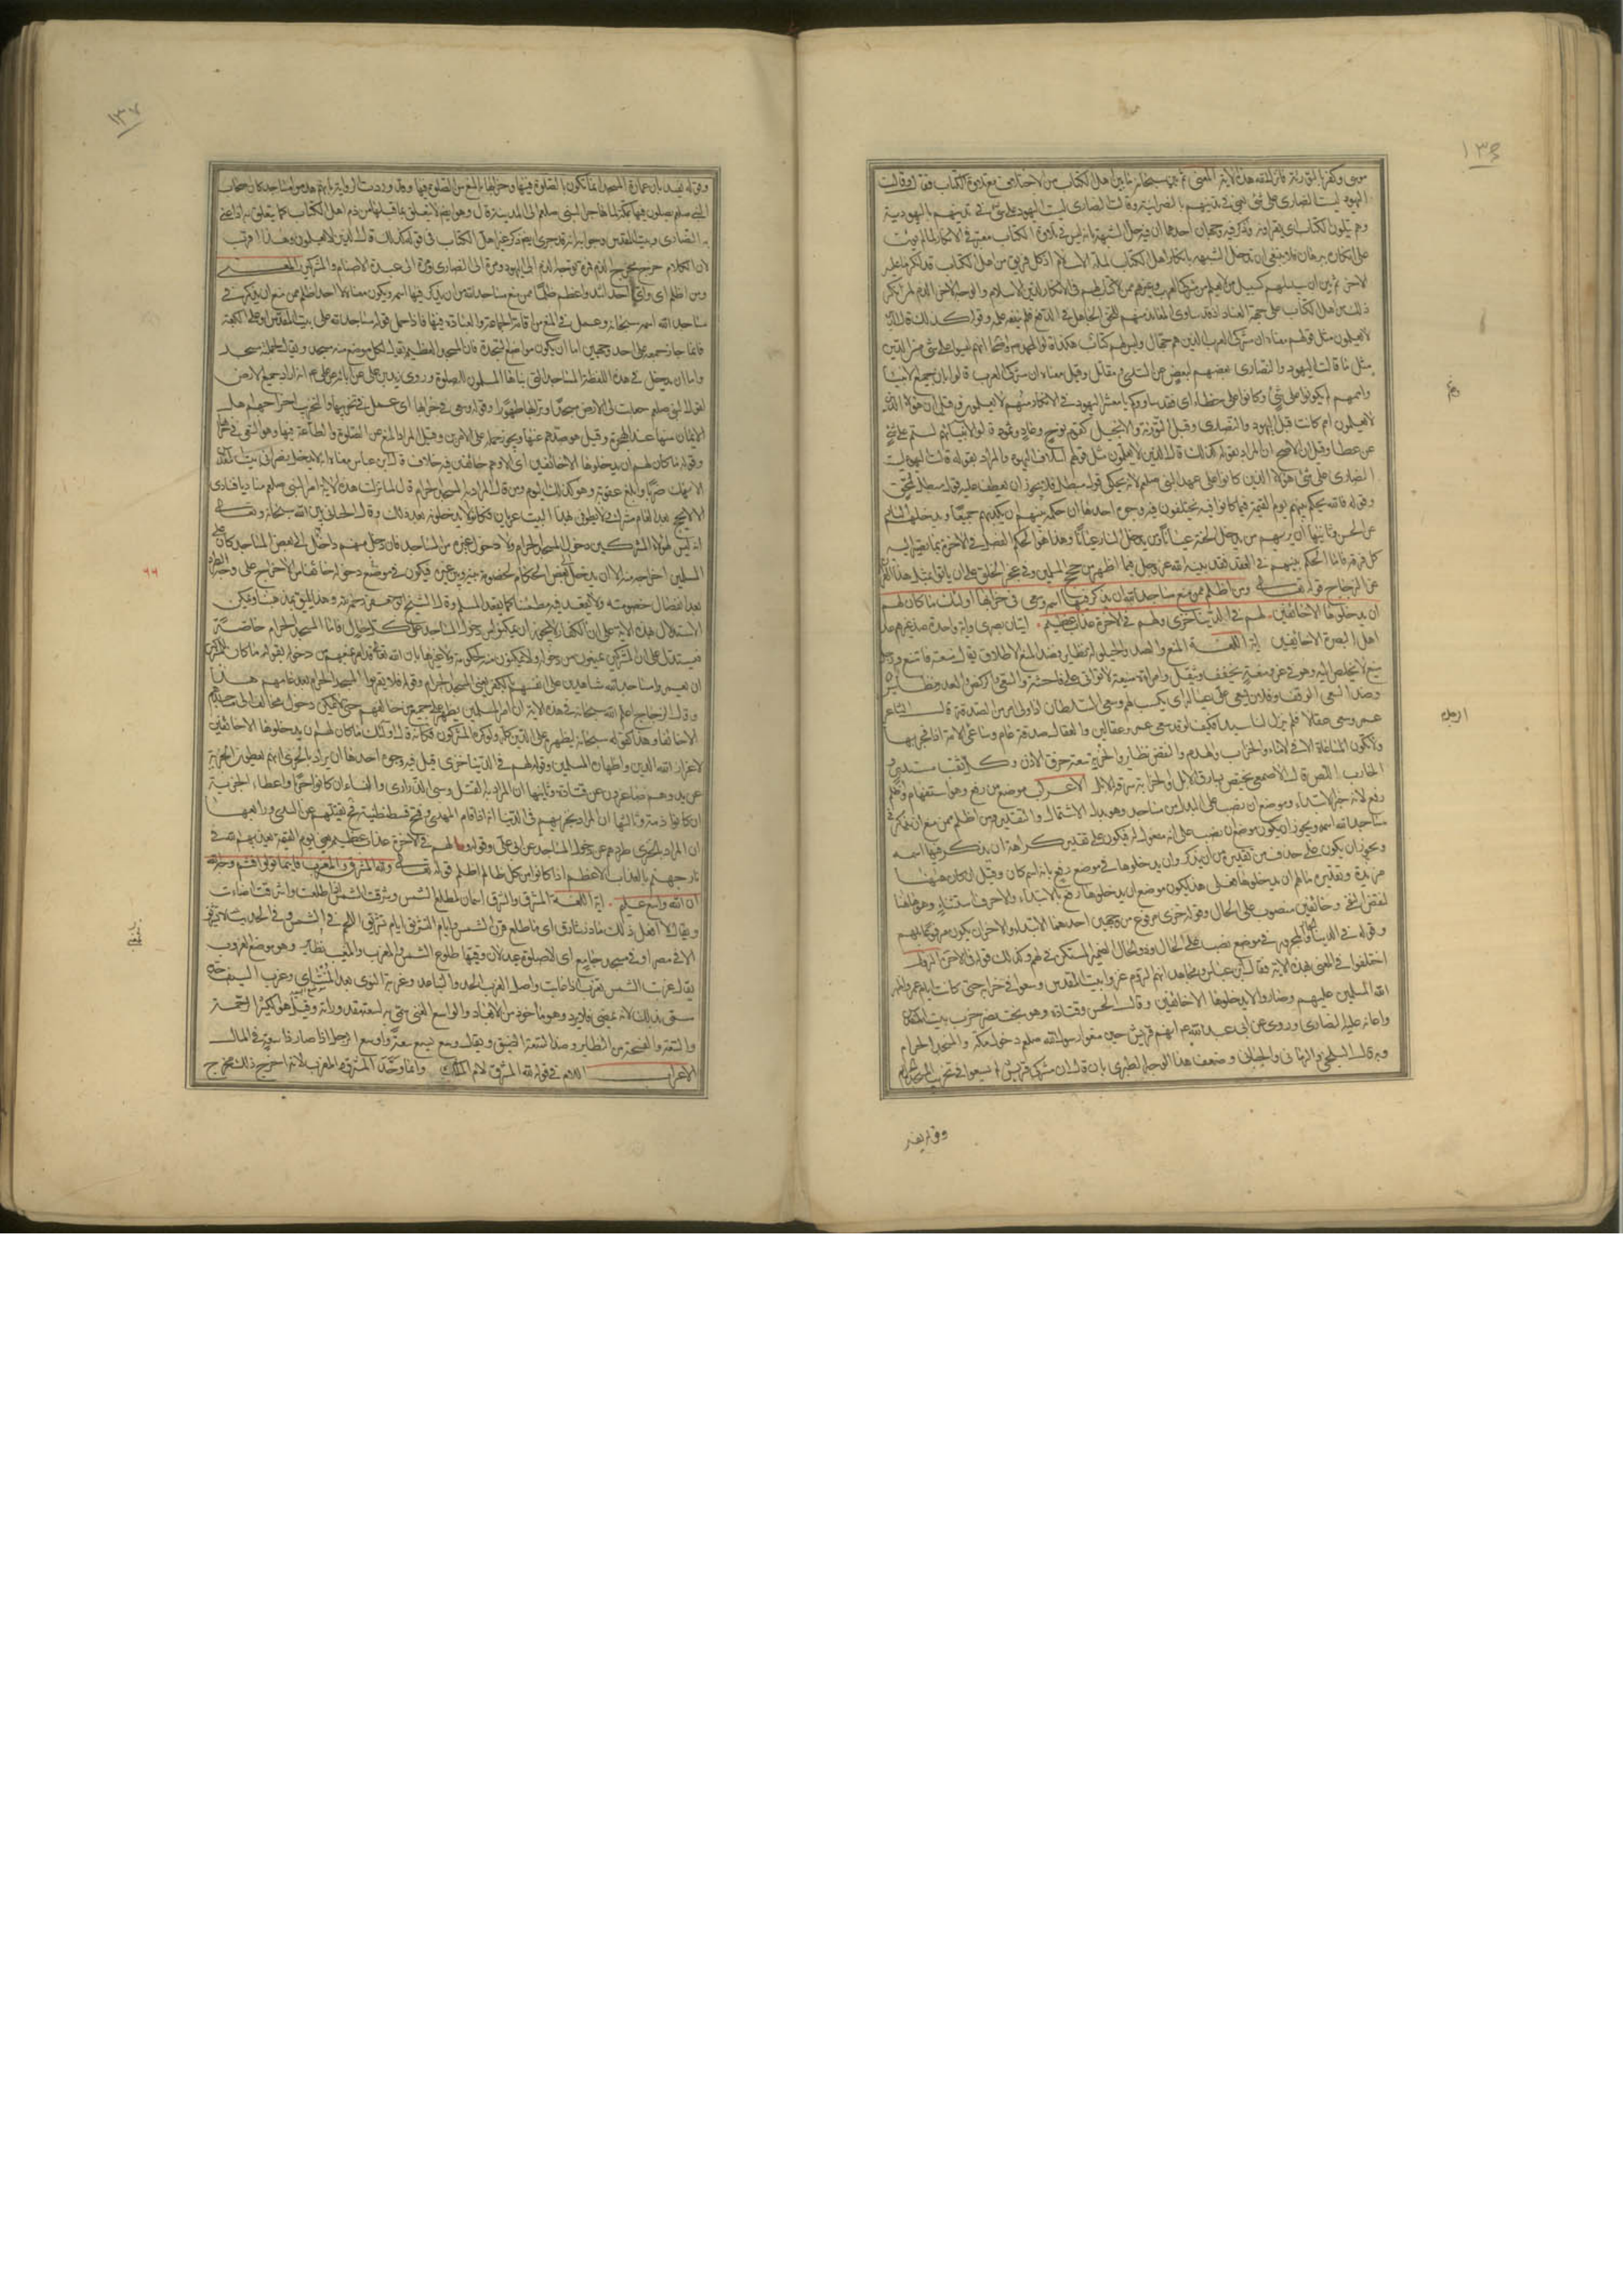 ١٣۶
موسى وكفر بالتورية المعنى ثم بين سبحانه ما بين اهل الكتاب من الاختلاف مع تلاوة الكتاب فقال وقالت
اليهود ليست النصارى على شئ في تدينهم بالنصرانية وقالت النصارى ليست اليهود على شئ في تدينهم باليهودية
وهم يتلون الكتاب اى يقرؤنه وذكر فيه وجهان احدهما ان فيه حل الشبهة بانه ليس في تلاوة الكتاب معتبر في الانكار لما لم يؤت
على انكاره ببرهان فلا ينبغى ان يدخل الشبهة بانكار اهل الكتاب لملة الاسلام اذ كل فريق من اهل الكتاب قد انكر ما عليه
الاخر ثم بين ان سبيلهم كسبيل من لا يعلم من مشركى العرب وغيرهم ممن لا كتاب لهم في الانكار لدين الاسلام والوجه الاخر الذم لمن انكر
ذلك من اهل الكتاب على جهة العناد اذ قد ساوى المعاند منهم للحق الجاهل به في الدفع له فلم ينفعه علمه وقوله كذلك قال الذين
لا يعلمون مثل قولهم معناه ان مشركى العرب الذين هم جهال وليس لهم كتاب هكذا قالوا لمحمد واصحابه انهم ليسوا على شئ من الدين
مثل ما قالت اليهود والنصارى بعضهم لبعض عن السدى ومقاتل وقيل معناه ان مشركى العرب قالوا بان جميع الانبياء
واممهم لم يكونوا على شئ وكانوا على خطاء اى فقد ساووكم يا معشر اليهود في الانكار وهم لا يعلمون وقيل ان هؤلاء الذين
لا يعلمون امم كانت قبل اليهود والنصارى وقبل التورية والانجيل كقوم نوح وعاد وثمود قالوا لانبيائهم لستم على شئ
عن عطا وقيل ان الاصح ان المراد بقوله كذلك قال الذين لا يعلمون مثل قولهم اسلاف اليهود والمراد بقوله قالت اليهود ليست
النصارى على شئ هؤلاء الذين كانوا على عهد النبى صلعم لانه حكى قول مبطل لقول مبطل فلا يجوز ان يعطف عليه
وقوله فالله يحكم بينهم يوم القيمة فيما كانوا فيه يختلفون فيه وجوه احدها ان حكمه بينهم ان يكذبهم جميعا ويدخلهم النار
عن الحسن وثانيها ان يريهم من يدخل الجنة عيانا ومن يدخل النار عيانا وهذا هو الحكم الفصل في الاخرة بما يصير اليه
كل فرقة فاما الحكم بينهم في العقد فقد بينه الله عز وجل فيما اظهر من حجج المسلمين وفي عجز الخلق على ان ياتوا بمثل هذا القران
عن الزجاج قوله تعالى ومن اظلم ممن منع مساجد الله ان يذكر فيها اسمه وسعى في خرابها اولئك ما كان لهم
ان يدخلوها الا خائفين لهم في الدنيا خزى ولهم في الاخرة عذاب عظيم ايتان بصرى واية واحدة عند غيرهم عد
اهل البصرة الا خائفين اية اللغة المنع والصد والحيلولة نظاير وضد المنع الاطلاق يقال منعته فامتنع ورجل
منيع لا يخلص اليه وهو في عز ومنعة يخفف ويثقل وامراة منيعة لا تواتى على فاحشة والسعى والركض والعدو نظاير
وضد السعى الوقف وفلان يسعى على عياله اى يكسب لهم وسعى للسلطان اذا ولى امر من الصدقة قال الشاعر
سعى عقالا فلم يترك لنا سبدا فكيف لو قد سعى عمرو عقالين والعقال صدقة عام وساعى الامة
والخراب والهدم والنقض نظاير والخربة سعة خرق الاذن وكل ثقب مستدير
الخارب اللص قال الاصمعى يختص بسارق الابل والخرابة سرقة الابل الاعراب موضع من رفع وهو استفهام واظلم
رفع لانه خبر الابتداء وموضع ان نصب على البدل من مساجد وهو بدل الاشتمال والتقدير ومن اظلم ممن منع ان يذكر في
مساجد الله اسمه ويجوز ان يكون موضع ان نصب على انه مفعول له فيكون على تقدير كراهة ان يذكر فيها اسمه
ويجوز ان يكون على حذف من تقديره من ان يذكر وان يدخلوها في موضع رفع بانه اسم كان وقيل ان كان ههنا
مزيدة وتقديره ما لهم ان يدخلوها فعلى هذا يكون موضع ان يدخلوها رفع بالابتداء والا حرف استثناء وهو ههنا
لنقض النفى وخائفين منصوب على الحال وقوله خزى مرفوع من وجهين احدهما الابتداء والاخر ان يكون معمولا لهم
وقوله في الدنيا في موضع نصب على الحال وذو الحال الضمير المستكن في لهم وكذلك قوله في الاخرة النزول
اختلفوا في المعنى بهذه الاية فقال ابن عباس ومجاهد انهم الروم غزوا بيت المقدس وسعوا في خرابه حتى كانت ايام عمر فاظهر
الله المسلمين عليهم وصاروا لا يدخلونها الا خائفين وقال الحسن وقتادة وهو بخت نصر خرب بيت المقدس
واعانه عليه النصارى وروى عن ابى عبد الله انهم قريش حين منعوا رسول الله صلعم دخول مكة والمسجد الحرام
وبه قال البلخى والرمانى والجبائى وضعف هذا الوجه الطبرى بان قال ان مشركى قريش لم يسعوا في تخريب المسجد الحرام
وقوله يفسد
١٣٧
وقوله يفسد بان عمارة المسجد انما تكون بالصلوة فيها وخرابها بالمنع من الصلوة فيها وقد وردت الرواية بانهم هدموا مساجد كان اصحاب
النبى صلعم يصلون فيها بمكة لما هاجر النبى صلعم الى المدينة قال وهو ايضا لا يتعلق بما قبلها من ذم اهل الكتاب كما يتعلق به اذا عنى
به النصارى وبيت المقدس وجوابه انه قد جرى ايضا ذكر غير اهل الكتاب في قوله كذلك قال الذين لا يعلمون وهذا اقرب
لان الكلام خرج مخرج الذم فمرة توجه الذم الى اليهود ومرة الى النصارى ومرة الى عبدة الاصنام والمشركين المعنى
ومن اظلم اى واى احد اشد واعظم ظلما ممن منع مساجد الله من ان يذكر فيها اسمه ويكون معناه لا احد اظلم ممن منع ان يذكر في
مساجد الله اسمه سبحانه وعمل في المنع من اقامة الجماعة والعبادة فيها فاذا حمل قوله مساجد الله على بيت المقدس او على الكعبة
فانما جاز جمعه على احد وجهين اما ان يكون مواضع السجدة فان المسجد العظيم يقال لكل موضع منه مسجد ويقال لجملته مسجد
واما ان يدخل في هذه اللفظة المساجد التى بناها المسلمون للصلوة وروى زيد بن على عن ابائه عن على انه اراد جميع الارض
لقول النبى صلعم جعلت لى الارض مسجدا وترابها طهورا وقوله وسعى في خرابها اى عمل في تخريبها والتخريب اخراجهم اهل
الايمان منها عند الهجرة وقيل هو صدهم عنها ويجوز حمله على الامرين وقيل المراد المنع عن الصلوة والطاعة فيها وهو السعى في خرابها
وقوله ما كان لهم ان يدخلوها الا خائفين فيه خلاف قال ابن عباس معناه انه لا يدخل نصرانى بيت المقدس
الا نهك ضربا وابلغ عقوبة وهو كذلك اليوم ومن قال المراد به المسجد الحرام قال لما نزلت هذه الاية امر النبى صلعم مناديا فنادى
الا لا يحج بعد العام مشرك ولا يطوفن بهذا البيت عريان فكانوا لا يدخلونه بعد ذلك وقال الجبائى بين الله سبحانه وتعالى
انه ليس لهؤلاء المشركين دخول المسجد الحرام ولا دخول غيره من المساجد فان دخل منهم داخل الى بعض المساجد كان على
المسلمين اخراجه منه الا ان يدخل الى بعض الحكام لخصومة بينه وبين غيره فيكون في موضع دخوله خائفا من الاخراج على وجه الطرد
بعد انفصال خصومته ولا يقعد فيه مطمئنا كما يقعد المسلم وقال الشيخ ابو جعفر رحمه الله وهذا يليق بمذهبنا ويمكن
الاستدلال بهذه الاية على ان الكفار لا يجوز ان يمكنوا من دخول المساجد على كل حال فاما المسجد الحرام خاصة
فيستدل على ان المشركين يمنعون من دخوله ولا يتركون منه لحكومة ولا غيرها بان الله تعالى قد امر بمنعهم من دخوله بقوله ما كان للمشركين
ان يعمروا مساجد الله شاهدين على انفسهم بالكفر يعنى المسجد الحرام وقوله فلا يقربوا المسجد الحرام بعد عامهم هذا
وقال الزجاج اعلم الله سبحانه في هذه الاية ان امر المسلمين يظهر على جميع من خالفهم حتى لا يمكن دخول مخالف الى مساجدهم
الا خائفا وهذا كقوله سبحانه ليظهره على الدين كله ولو كره المشركون فكانه قال اولئك ما كان لهم ان يدخلوها الا خائفين
لاعزاز الله الدين واظهاره المسلمين وقوله لهم في الدنيا خزى قيل فيه وجوه احدها ان يراد بالخزى انهم يعطون الجزية
عن يد وهم صاغرون عن قتادة وثانيها ان المراد به القتل وسبى الذرارى والنساء ان كانوا حربا واعطاء الجزية
ان كانوا ذمة وثالثها ان المراد بخزيهم في الدنيا انه اذا قام المهدى وفتح قسطنطينية فحينئذ يقتلهم عن السدى ورابعها
ان المراد بالخزى طردهم عن دخول المساجد عن ابى على وقوله ولهم في الاخرة عذاب عظيم يعنى يوم القيمة يعذبهم الله في
نار جهنم بالعذاب الاعظم اذا كانوا من كل ظالم اظلم قوله تعالى ولله المشرق والمغرب فاينما تولوا فثم وجه الله
ان الله واسع عليم اية اللغة المشرق والشرق اسمان لمطلع الشمس وشرقت الشمس اذا طلعت واشرقت اضاءت
ويقال لا افعل ذلك ما ذر شارق اى ما طلع قرن الشمس وايام التشريق ايام تشريق اللحم في الشمس وفي الحديث لا تشريق
الا في مصر او في مسجد جامع اى لا صلوة عيد لان وقتها طلوع الشمس والمغرب والمغيب نظاير وهو موضع الغروب
يقال غربت الشمس تغرب اذا غابت واصل الغرب الحد والتباعد وغربة النوى بعد المنتاى وغرب السيف حده
سمى بذلك لانه يمضى فلا يرد وهو ماخوذ من الابعاد والواسع الغنى سمى به لسعة مقدوراته وقيل هو الكثير الرحمة
والسعة والفسحة من النظاير وضد السعة الضيق ويقال وسع يسع سعة واوسع الرجل اذا صار ذا سعة في المال
الاعراب اللام في قوله لله المشرق لام الملك وانما وحد المشرق والمغرب لانه اخرج ذلك مخرج